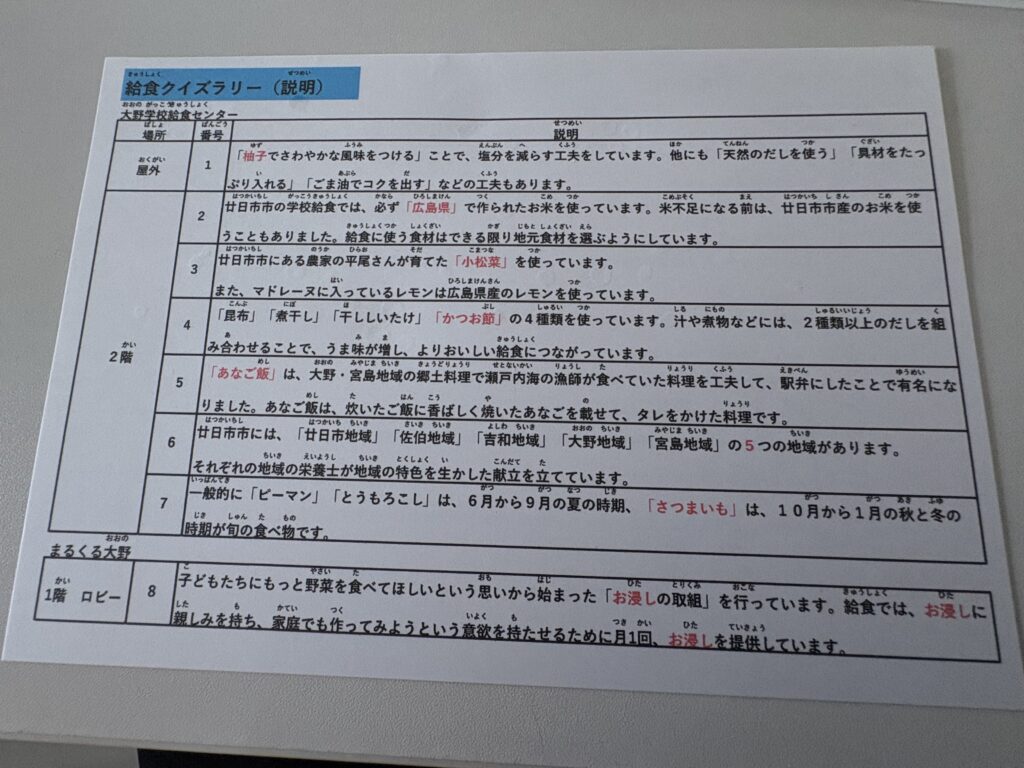 給食クイズラリー（説明）
大野学校給食センター
場所 番号 説明
屋外 1 「柚子でさわやかな風味をつける」ことで、塩分を減らす工夫をしています。他にも「天然のだしを使う」「具材をたっ
ぷり入れる」「ごま油でコクを出す」などの工夫もあります。
2階
2 廿日市市の学校給食では、必ず「広島県」で作られたお米を使っています。米不足になる前は、廿日市市産のお米を使
うこともありました。給食に使う食材はできる限り地元食材を選ぶようにしています。
3 廿日市市にある農家の平尾さんが育てた「小松菜」を使っています。
また、マドレーヌに入っているレモンは広島県産のレモンを使っています。
4 「昆布」「煮干し」「干ししいたけ」「かつお節」の４種類を使っています。汁や煮物などには、２種類以上のだしを組
み合わせることで、うま味が増し、よりおいしい給食につながっています。
5 「あなご飯」は、大野・宮島地域の郷土料理で瀬戸内海の漁師が食べていた料理を工夫して、駅弁にしたことで有名にな
りました。あなご飯は、炊いたご飯に香ばしく焼いたあなごを載せて、タレをかけた料理です。
6 廿日市市には、「廿日市地域」「佐伯地域」「吉和地域」「大野地域」「宮島地域」の５つの地域があります。
それぞれの地域の栄養士が地域の特色を生かした献立を立てています。
7 一般的に「ピーマン」「とうもろこし」は、６月から９月の夏の時期、「さつまいも」は、１０月から１月の秋と冬の
時期が旬の食べ物です。
まるくる大野
1階 ロビー 8 子どもたちにもっと野菜を食べてほしいという思いから始まった「お浸しの取組」を行っています。給食では、お浸しに
親しみを持ち、家庭でも作ってみようという意欲を持たせるために月1回、お浸しを提供しています。